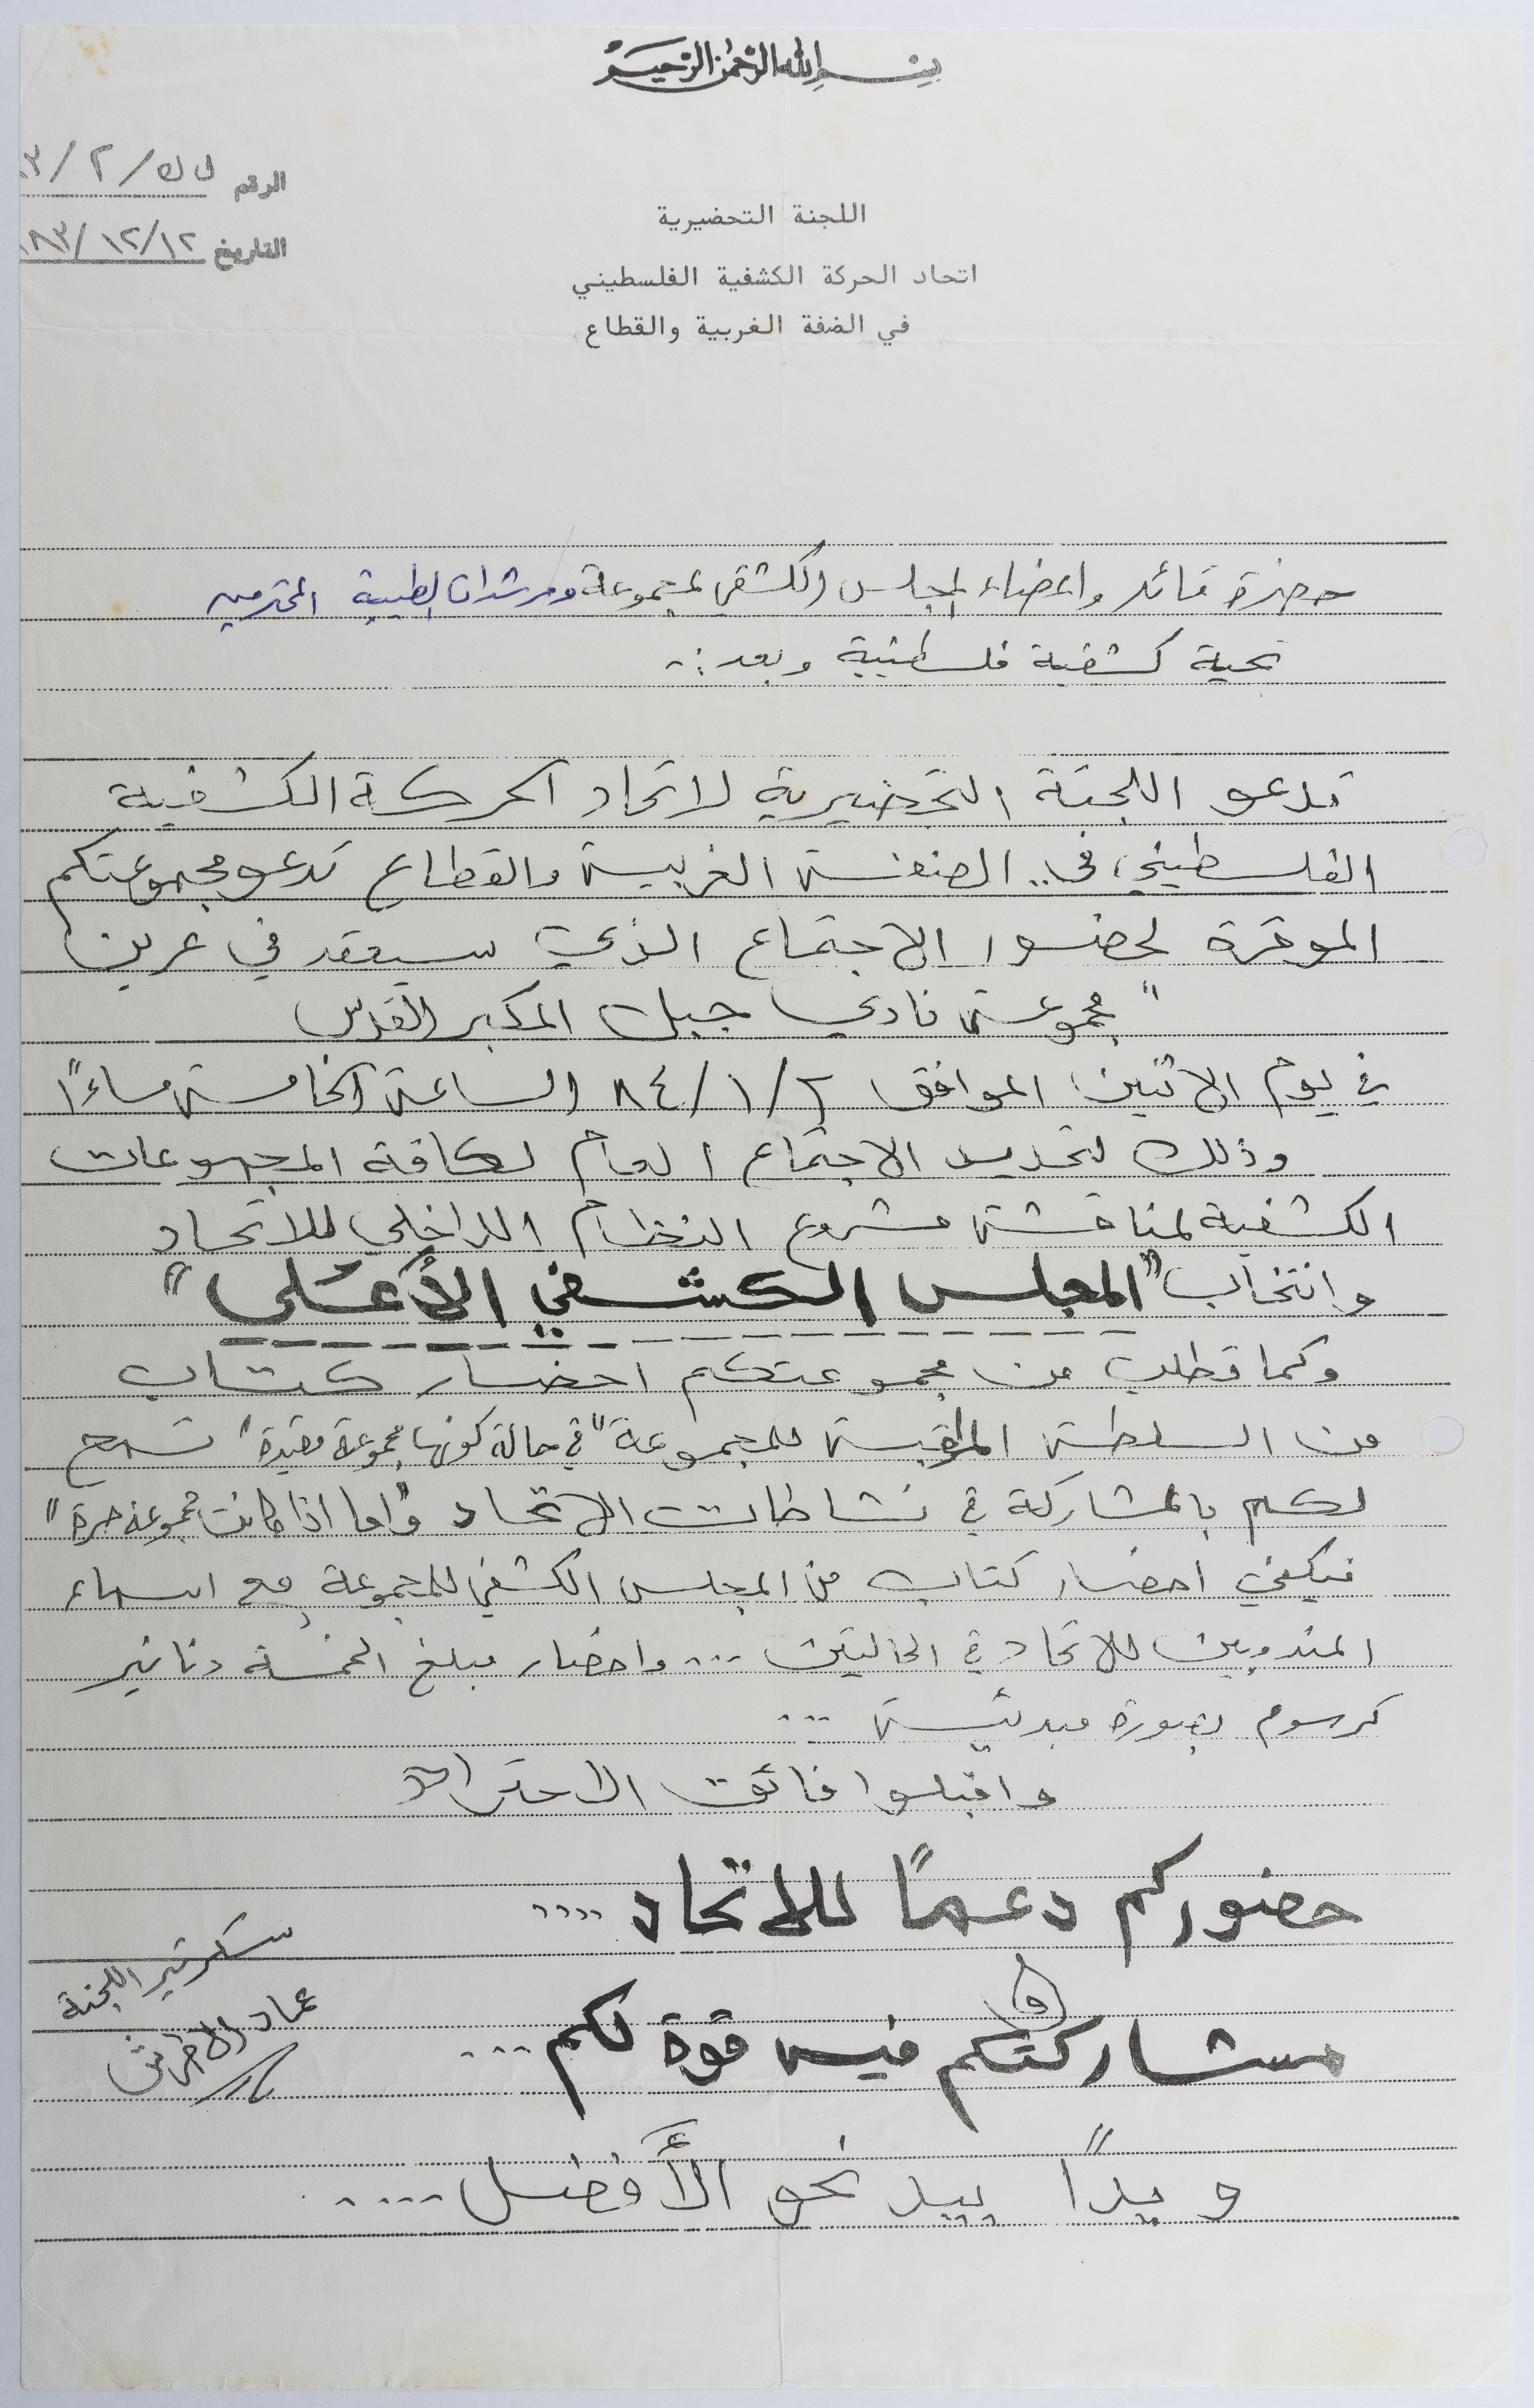 بسم الله الرحمن الرحيم
الرقم ل ك / ٢ / ٨٣
التاريخ ١٢/١٢/ ٨٣
اللجنة التحضيرية
اتحاد الحركة الكشفية الفلسطيني
في الضفة الغربية والقطاع
حضرة قائد واعضاء المجلس الكشفي لمجموعة ومرشدات الطيبة المحترمين
تحية كشفية فلسطينية وبعد :-
تدعو اللجنة التحضيرية لاتحاد الحركة الكشفية
الفلسطيني في .. الضفة الغربية والقطاع تدعو مجموعتكم
الموقرة لحضور الاجتماع الذي سيعقد في عرين
" مجموعة نادي جبل المكبر القدس
في يوم الاثنين الموافق ٢/١/٨٤ الساعة الخامسة مساءً
وذلك لتحديد الاجتماع العام لكافة المجموعات
الكشفية لمناقشة مشروع النظام الداخلي للاتحاد
وانتخاب "المجلس الكشفي الأعلى"
وكما نطلب من مجموعتكم احضار كتاب
من السلطة المراقبة للمجموعة "في حالة كونها مجموعة مقيدة" تسمح
لكم بالمشاركة في نشاطات الاتحاد "واما اذا كانت مجموعة حرة"
فيكفي احضار كتاب من المجلس الكشفي للمجموعة مع اسماء
المندوبين للاتحاد في الحالتين ... واحضار مبلغ الخمسة دنانير
كرسوم بصورة مبدئية ...
واقبلوا فائق الاحترام
حضوركم دعمًا للاتحاد ....
و
مشاركتكم فيه قوة لكم ...
ويدًا بيد نحو الأفضل ....
سكرتير اللجنة
عماد الاطرش